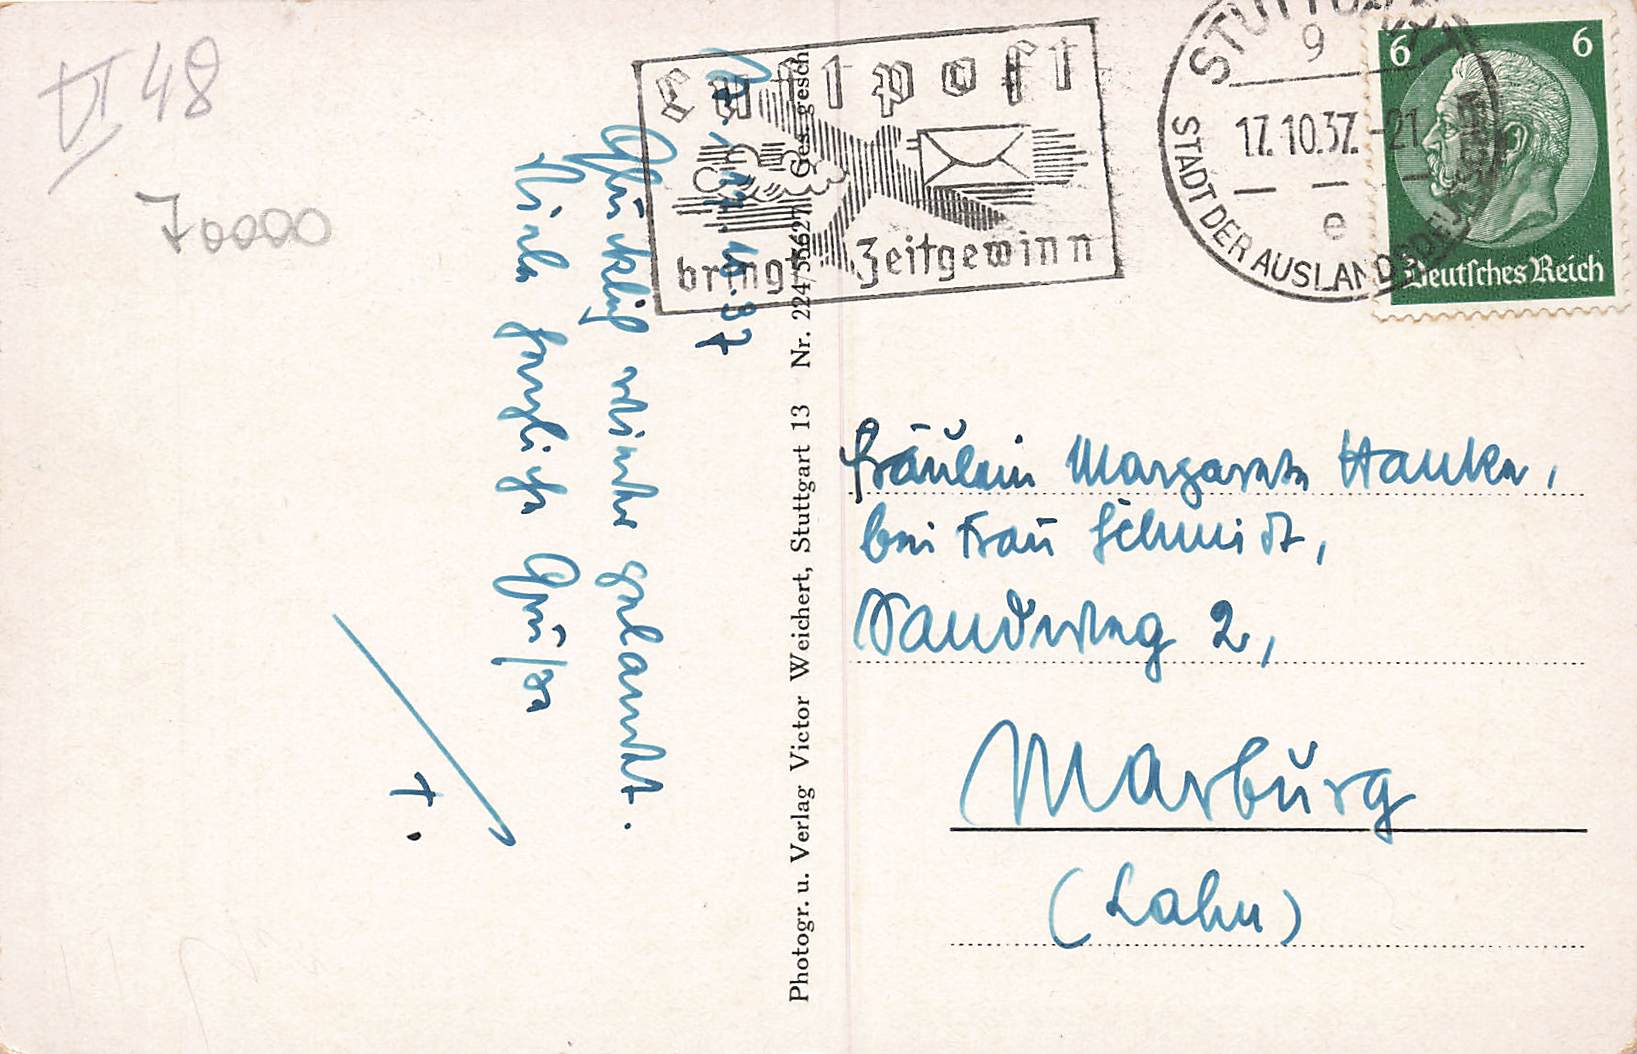 VI 48
70000
Luftpost
bringt Zeitgewinn
STUTTGART
9
17.10.37.-21
e
STADT DER AUSLANDSDEUTSCHEN
6 6
Deutsches Reich
17.10.37
Glücklich wieder gelandet.
Viele herzliche Grüße
T.
Photogr. u. Verlag Victor Weichert, Stuttgart 13 Nr. 224/36627 Ges. gesch
Fräulein Margarete Hanke,
bei Frau Schmidt,
Sandweg 2,
Marburg
(Lahn)